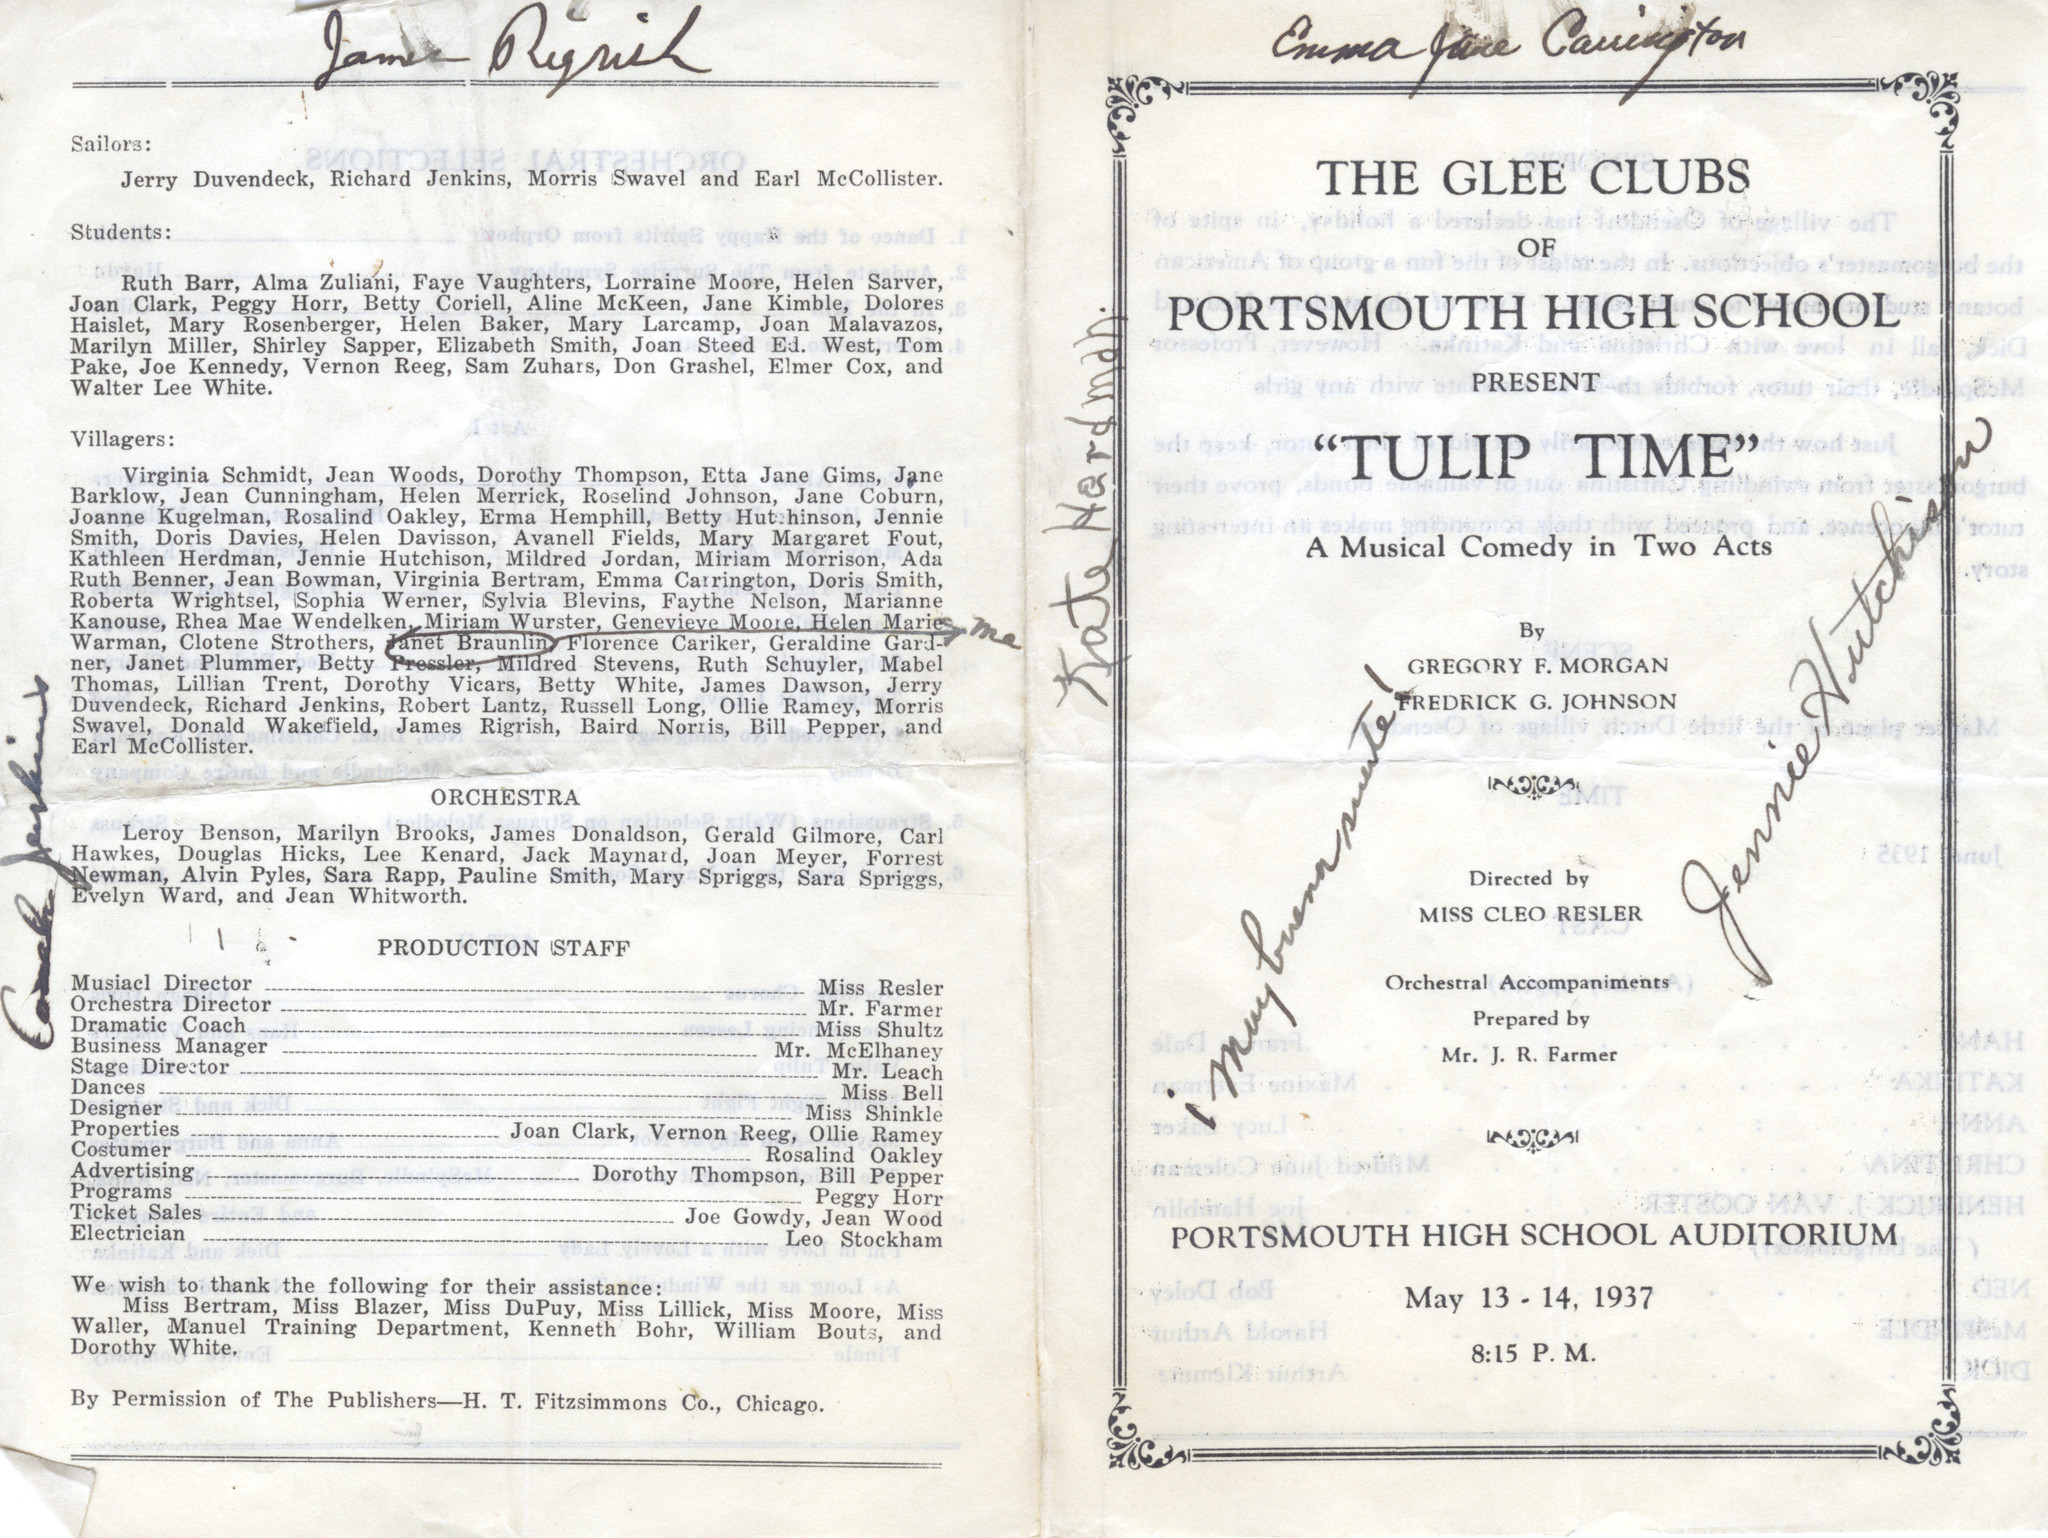 James Rigrish
Sailors:
Jerry Duvendeck, Richard Jenkins, Morris Swavel and Earl McCollister.
Students:
Ruth Barr, Alma Zuliani, Faye Vaughters, Lorraine Moore, Helen Sarver,
Joan Clark, Peggy Horr, Betty Coriell, Aline McKeen, Jane Kimble, Dolores
Haislet, Mary Rosenberger, Helen Baker, Mary Larcamp, Joan Malavazos,
Marilyn Miller, Shirley Sapper, Elizabeth Smith, Joan Steed Ed. West, Tom
Pake, Joe Kennedy, Vernon Reeg, Sam Zuhars, Don Grashel, Elmer Cox, and
Walter Lee White.
Villagers:
Virginia Schmidt, Jean Woods, Dorothy Thompson, Etta Jane Gims, Jane
Barklow, Jean Cunningham, Helen Merrick, Roselind Johnson, Jane Coburn,
Joanne Kugelman, Rosalind Oakley, Erma Hemphill, Betty Hutchinson, Jennie
Smith, Doris Davies, Helen Davisson, Avanell Fields, Mary Margaret Fout,
Kathleen Herdman, Jennie Hutchison, Mildred Jordan, Miriam Morrison, Ada
Ruth Benner, Jean Bowman, Virginia Bertram, Emma Carrington, Doris Smith,
Roberta Wrightsel, Sophia Werner, Sylvia Blevins, Faythe Nelson, Marianne
Kanouse, Rhea Mae Wendelken, Miriam Wurster, Genevieve Moore, Helen Marie
me
Warman, Clotene Strothers, Janet Braunlin, Florence Cariker, Geraldine Gard-
ner, Janet Plummer, Betty Pressler, Mildred Stevens, Ruth Schuyler, Mabel
Thomas, Lillian Trent, Dorothy Vicars, Betty White, James Dawson, Jerry
Duvendeck, Richard Jenkins, Robert Lantz, Russell Long, Ollie Ramey, Morris
Swavel, Donald Wakefield, James Rigrish, Baird Norris, Bill Pepper, and
Earl McCollister.
Jenkins
ORCHESTRA
Leroy Benson, Marilyn Brooks, James Donaldson, Gerald Gilmore, Carl
Hawkes, Douglas Hicks, Lee Kenard, Jack Maynard, Joan Meyer, Forrest
Newman, Alvin Pyles, Sara Rapp, Pauline Smith, Mary Spriggs, Sara Spriggs,
Evelyn Ward, and Jean Whitworth.
PRODUCTION STAFF
Musiacl Director Miss Resler
Orchestra Director Mr. Farmer
Dramatic Coach Miss Shultz
Business Manager Mr. McElhaney
Stage Director Mr. Leach
Dances Miss Bell
Designer Miss Shinkle
Properties Joan Clark, Vernon Reeg, Ollie Ramey
Costumer Rosalind Oakley
Advertising Dorothy Thompson, Bill Pepper
Programs Peggy Horr
Ticket Sales Joe Gowdy, Jean Wood
Electrician Leo Stockham
We wish to thank the following for their assistance:
Miss Bertram, Miss Blazer, Miss DuPuy, Miss Lillick, Miss Moore, Miss
Waller, Manuel Training Department, Kenneth Bohr, William Bouts, and
Dorothy White.
By Permission of The Publishers—H. T. Fitzsimmons Co., Chicago.
Emma Jane Carrington
THE GLEE CLUBS
OF
PORTSMOUTH HIGH SCHOOL
PRESENT
"TULIP TIME"
A Musical Comedy in Two Acts
Kate Hardman
By
GREGORY F. MORGAN
FREDRICK G. JOHNSON
¡Muy buena suerte!
Jennie Hutchison
Directed by
MISS CLEO RESLER
Orchestral Accompaniments
Prepared by
Mr. J. R. Farmer
PORTSMOUTH HIGH SCHOOL AUDITORIUM
May 13 - 14, 1937
8:15 P. M.